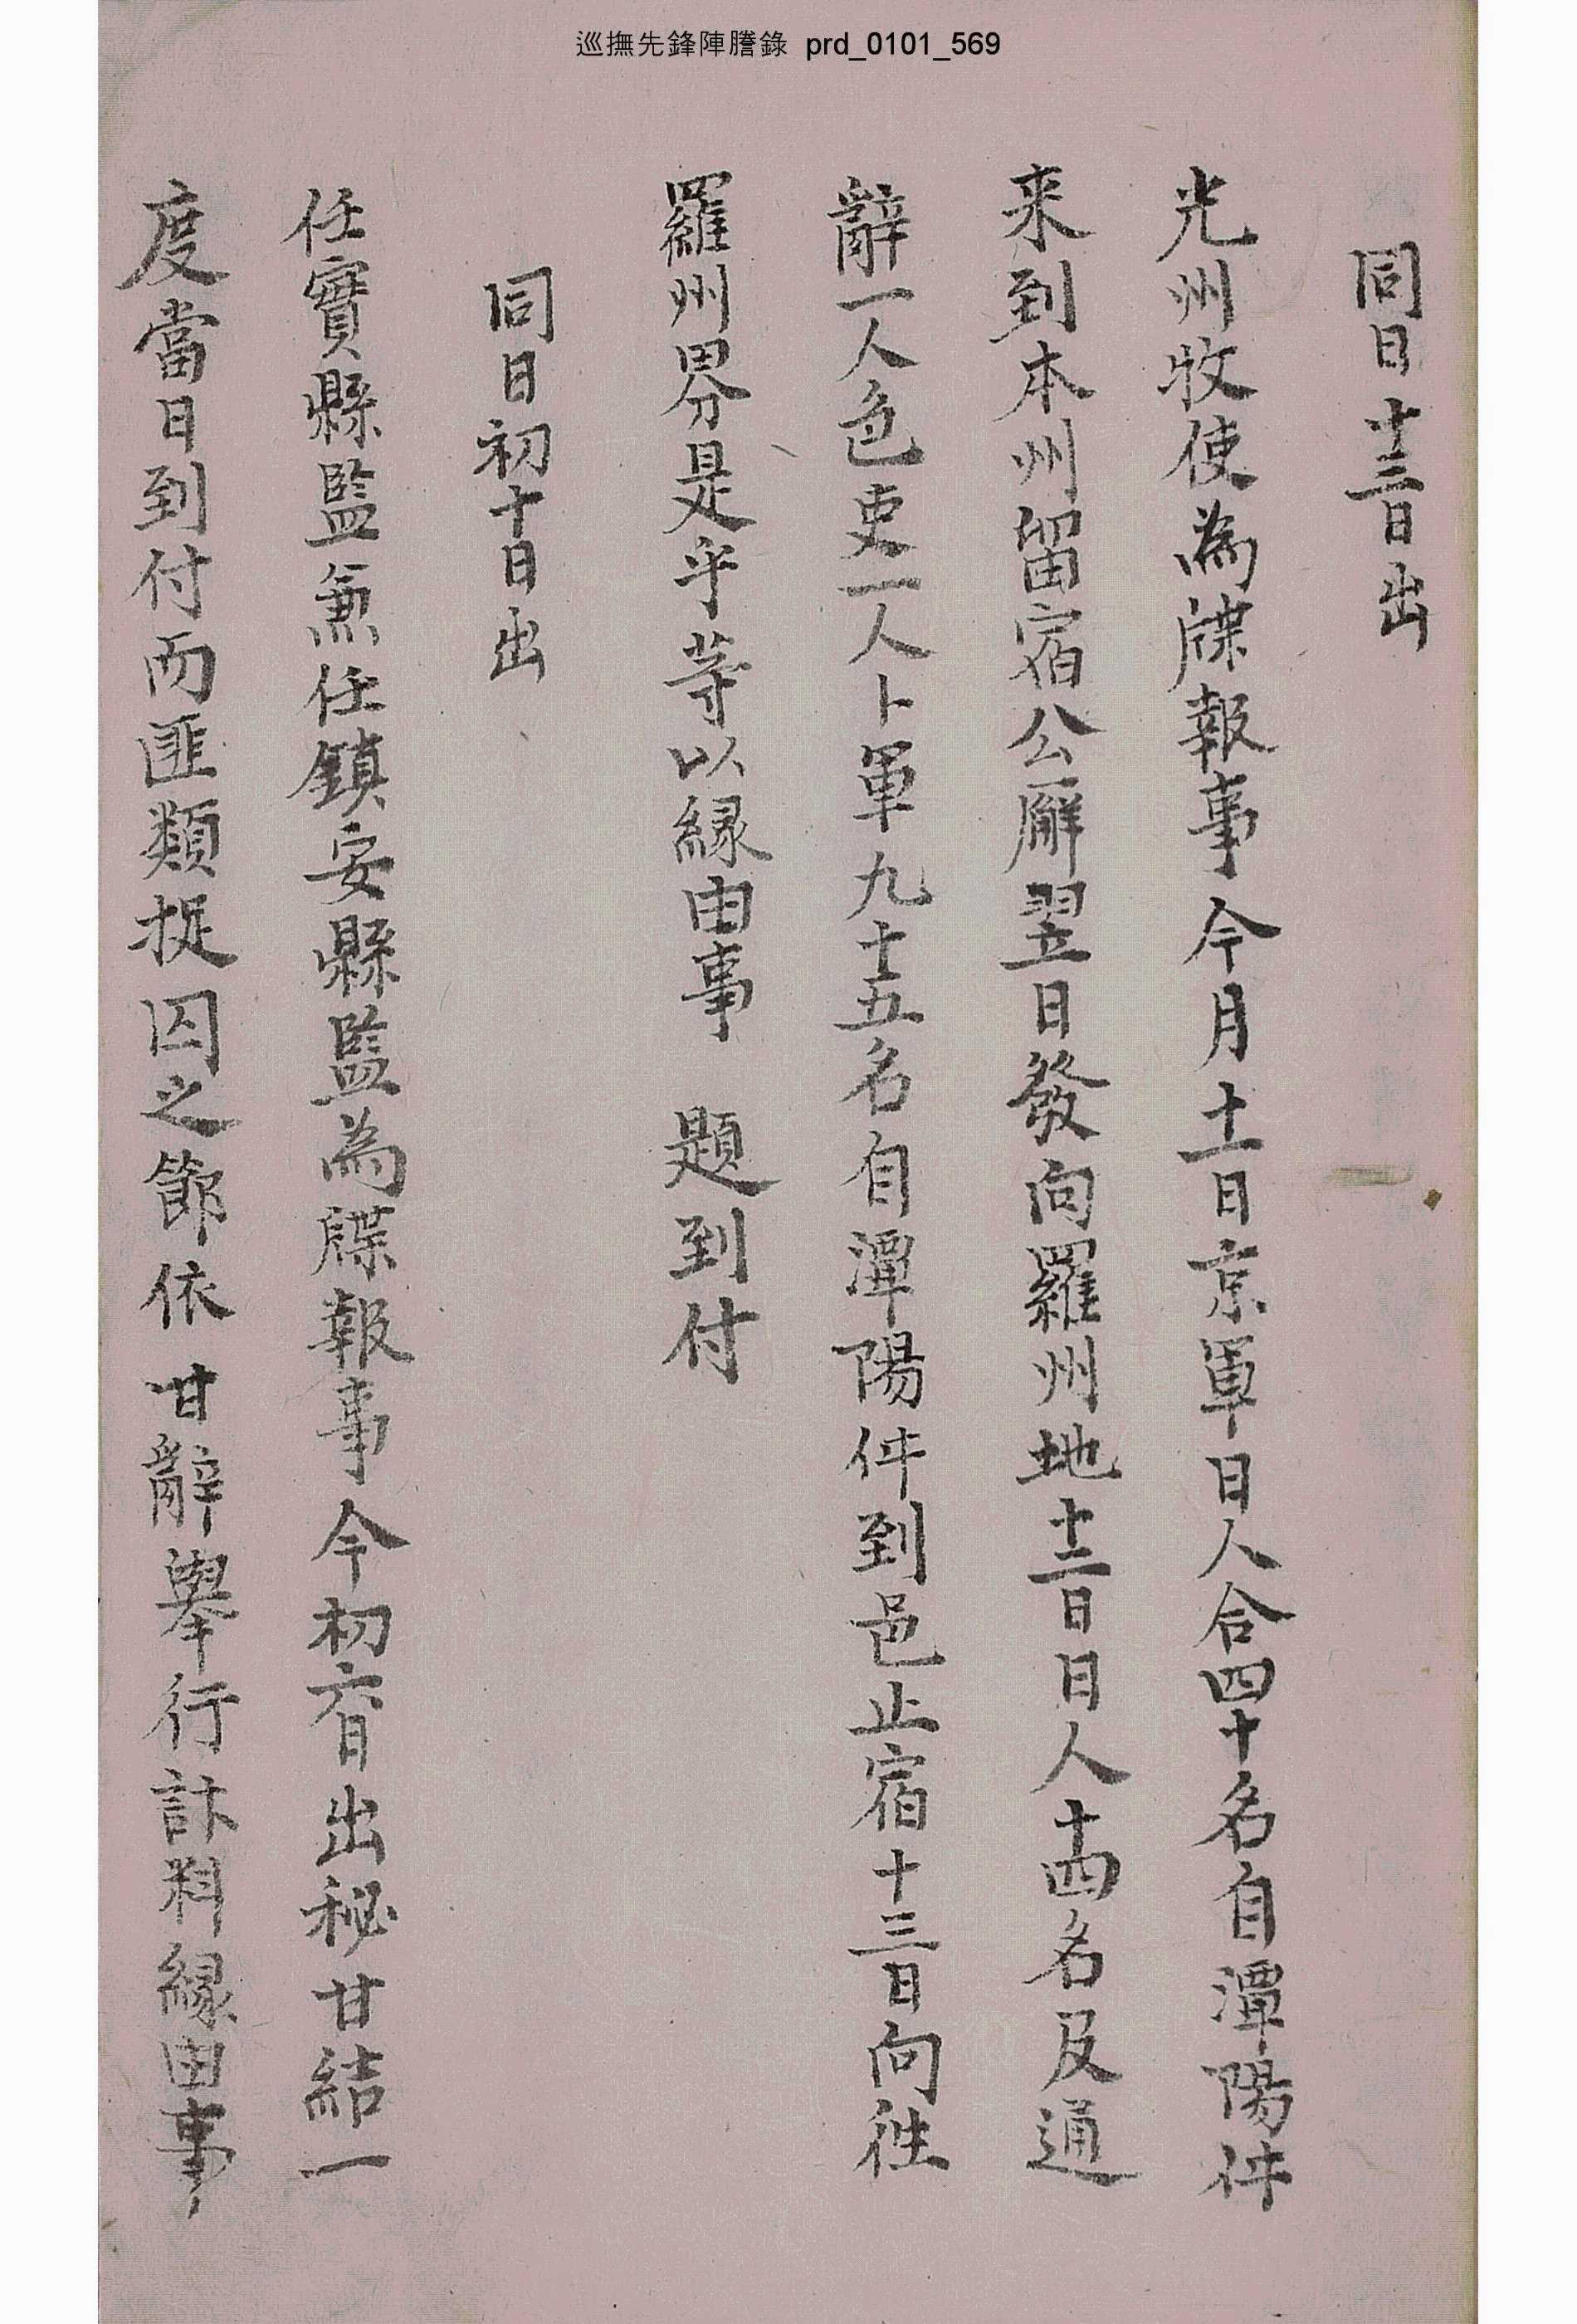 巡撫先鋒陣謄錄 prd_0101_569
同日十三日出
光州牧使為牒報事今月十一日京軍日人合四十名自潭陽件
来到本州留宿公廨翌日發向羅州地十二日日人十四名及通
辭一人色吏一人卜軍九十五名自潭陽件到邑止宿十三日向徃
羅州界分是乎等以緣由事 題到付
同日初十日出
任實縣監兼任鎮安縣監為牒報事今初六日出秘甘結一
度當日到付而匪類捉囚之節依 甘辭擧行計料緣由事